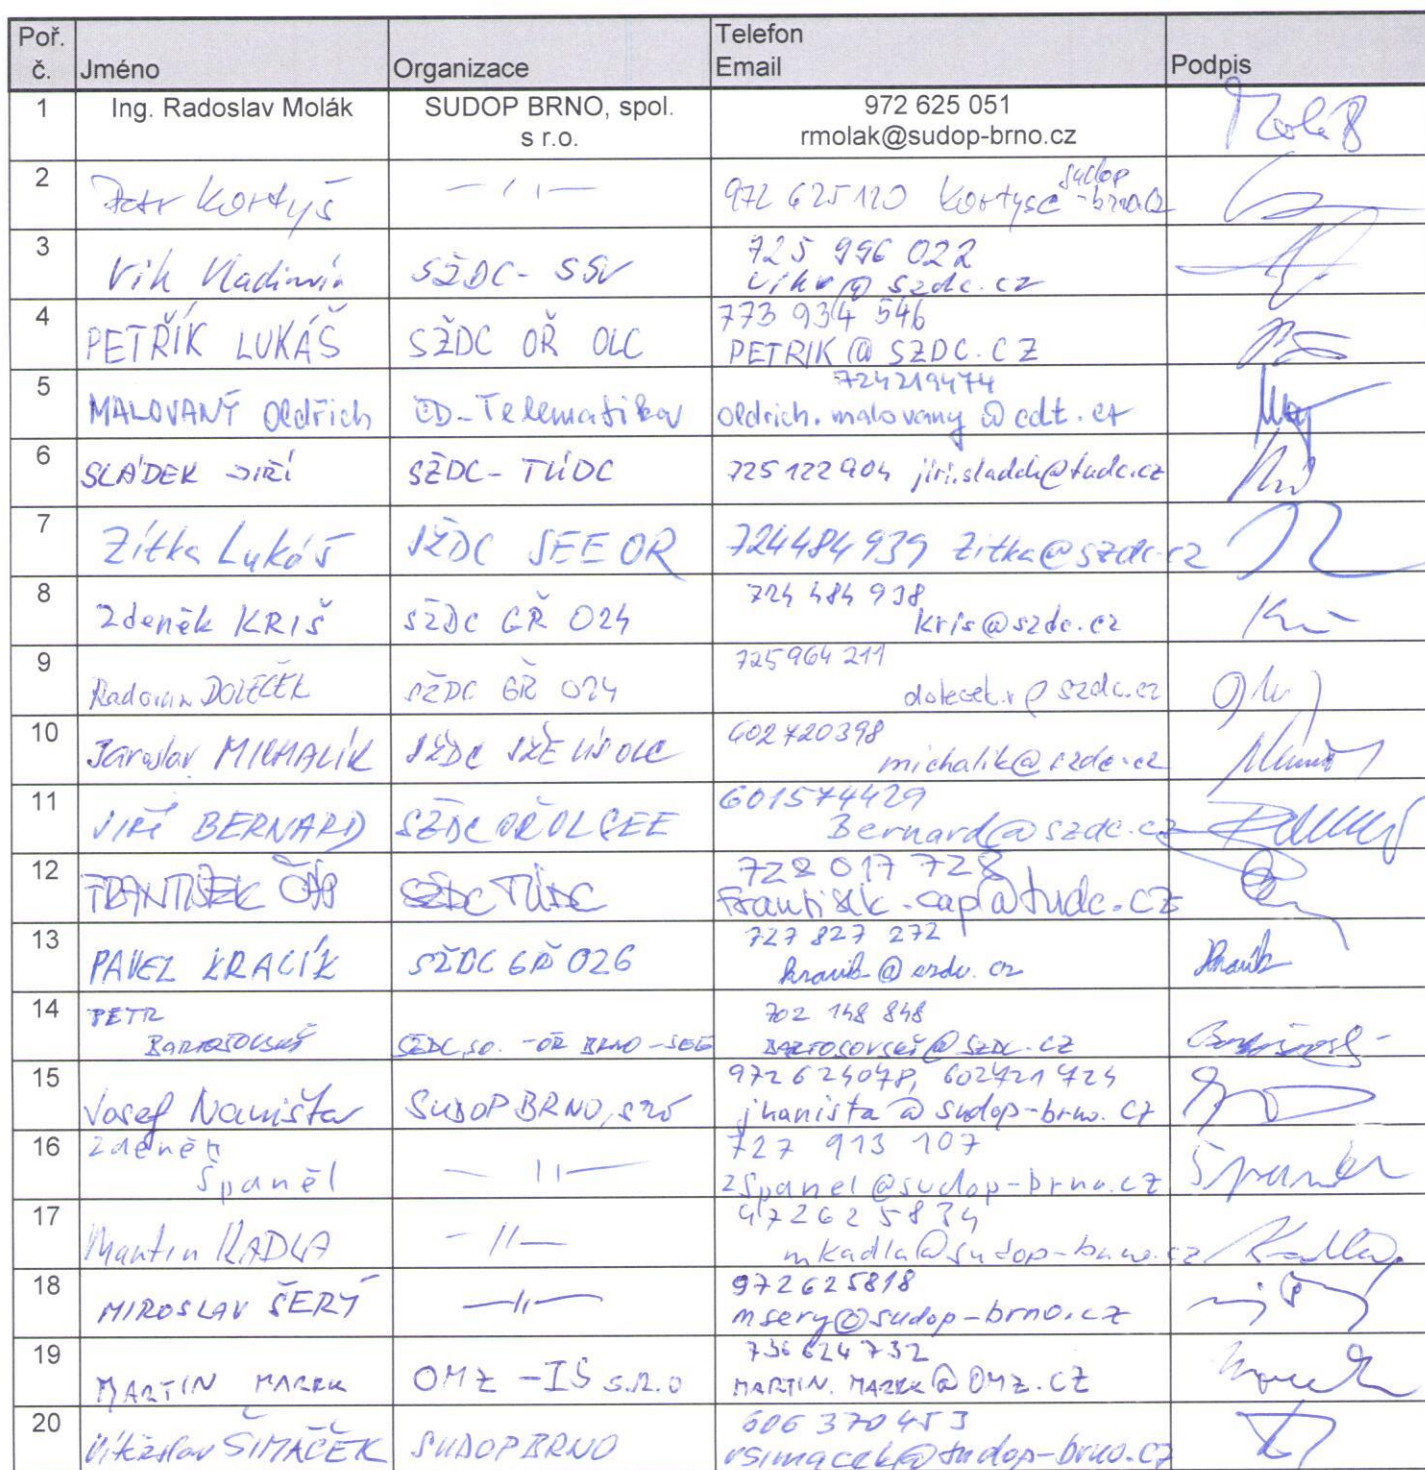 Poř. č. Jméno Organizace Telefon Email Podpis
1 Ing. Radoslav Molák SUDOP BRNO, spol. s r.o. 972 625 051
rmolak@sudop-brno.cz
2 Petr Kortyš — 11 — 972 625 120 kortysc sudop -brno.cz
3 Vik Vladimír SŽDC - SSV 725 996 022
vikv@szdc.cz
4 PETŘÍK LUKÁŠ SŽDC OŘ OLC 773 934 546
PETRIK@SZDC.CZ
5 MALOVANÝ Oldřich ČD-Telematika 724219474
oldrich.malovany@cdt.cz
6 SLÁDEK JIŘÍ SŽDC - TÚDC 725 122 904 jiri.sladek@tudc.cz
7 Zítka Lukáš SŽDC SEE OR 724484939 zitka@szdc.cz
8 Zdeněk KRIŠ SŽDC GŘ O24 724 484 938
kris@szdc.cz
9 Radovan DOLEČEK SŽDC GŘ O24 725964211
dolecek.r@szdc.cz
10 Jaroslav MICHALÍK SŽDC OLC 602720398
michalik@szdc.cz
11 JIŘÍ BERNARD SŽDC OŘ OLC SEE 601574429
Bernard@szdc.cz
12 FRANTIŠEK ČÁP SŽDC TÚDC 728 017 728
frantisek.cap@tudc.cz
13 PAVEL KRACÍK SŽDC GŘ O26 727 827 272
kracik@szdc.cz
14 PETR
BARTOŠOVSKÝ SŽDC, s.o. - OŘ BRNO - SEE 702 148 848
BARTOSOVSKY@SZDC.CZ
15 Josef Haništa SUDOP BRNO, sro 972 624078, 602421424
jhanista@sudop-brno.cz
16 Zdeněk
Španěl — 11 — 727 913 107
zspanel@sudop-brno.cz
17 Martin KADLA — 11 — 972625834
mkadla@sudop-brno.cz
18 MIROSLAV ŠERÝ — 11 — 972625818
msery@sudop-brno.cz
19 MARTIN MAREK OMZ - IŠ s.r.o 736 624 732
MARTIN.MAREK@OMZ.CZ
20 Vítězslav ŠIMÁČEK SUDOP BRNO 606 370 453
vsimacek@sudop-brno.cz